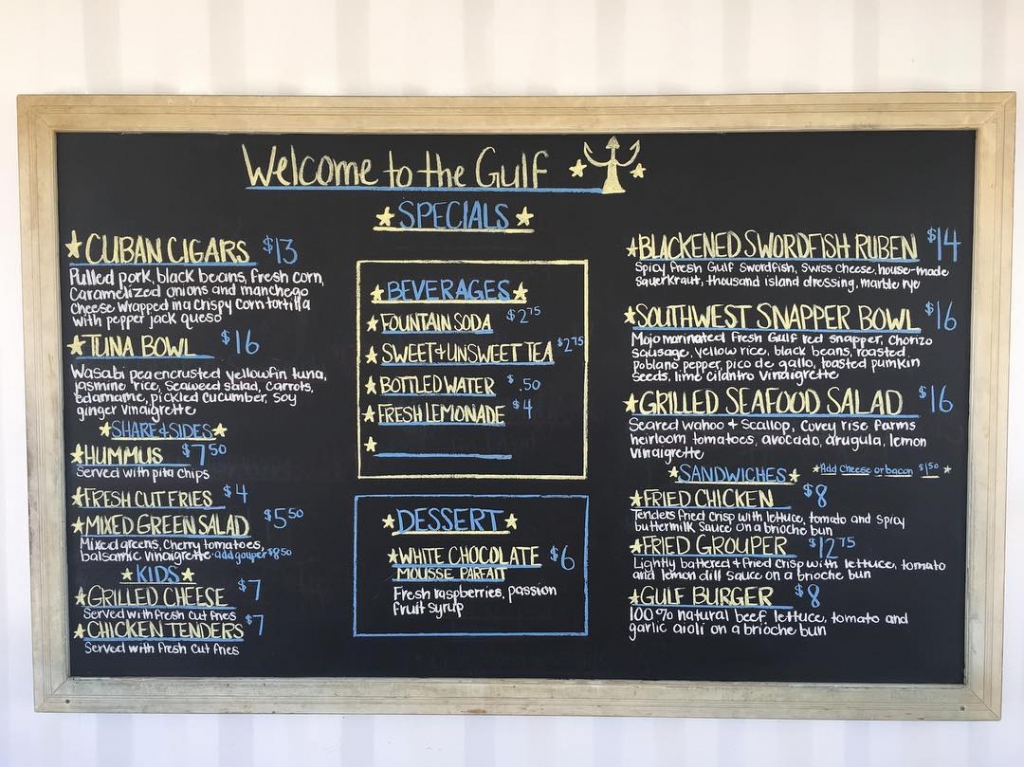 Welcome to the Gulf
SPECIALS
CUBAN CIGARS $13
Pulled pork, black beans, fresh corn,
Caramelized onions and manchego
Cheese wrapped in a crispy corn tortilla
with pepper jack queso
TUNA BOWL $16
Wasabi pea encrusted yellowfin tuna,
jasmine rice, seaweed salad, carrots,
edamame, pickled cucumber, soy
ginger vinaigrette
SHARE & SIDES
HUMMUS $7.50
Served with pita chips
FRESH CUT FRIES $4
MIXED GREEN SALAD $5.50
Mixed greens, cherry tomatoes,
balsamic vinaigrette - add grouper $8.50
KIDS
GRILLED CHEESE $7
Served with fresh cut fries
CHICKEN TENDERS $7
Served with fresh cut fries
BEVERAGES
FOUNTAIN SODA $2.75
SWEET & UNSWEET TEA $2.75
BOTTLED WATER $.50
FRESH LEMONADE $4
DESSERT
WHITE CHOCOLATE $6
MOUSSE PARFAIT
Fresh raspberries, passion
fruit syrup
BLACKENED SWORDFISH RUBEN $14
Spicy fresh Gulf swordfish, swiss cheese, house-made
sauerkraut, thousand island dressing, marble rye
SOUTHWEST SNAPPER BOWL $16
Mojo marinated fresh Gulf red snapper, chorizo
sausage, yellow rice, black beans, roasted
poblano pepper, pico de gallo, toasted pumkin
seeds, lime cilantro vinaigrette
GRILLED SEAFOOD SALAD $16
Seared wahoo & scallop, Covey rise farms
heirloom tomatoes, avocado, arugula, lemon
vinaigrette
SANDWICHES Add Cheese or bacon $1.50
FRIED CHICKEN $8
Tenders fried crisp with lettuce, tomato and spicy
buttermilk sauce on a brioche bun
FRIED GROUPER $12.75
Lightly battered & fried crisp with lettuce, tomato
and lemon dill sauce on a brioche bun
GULF BURGER $8
100% natural beef, lettuce, tomato and
garlic aioli on a brioche bun